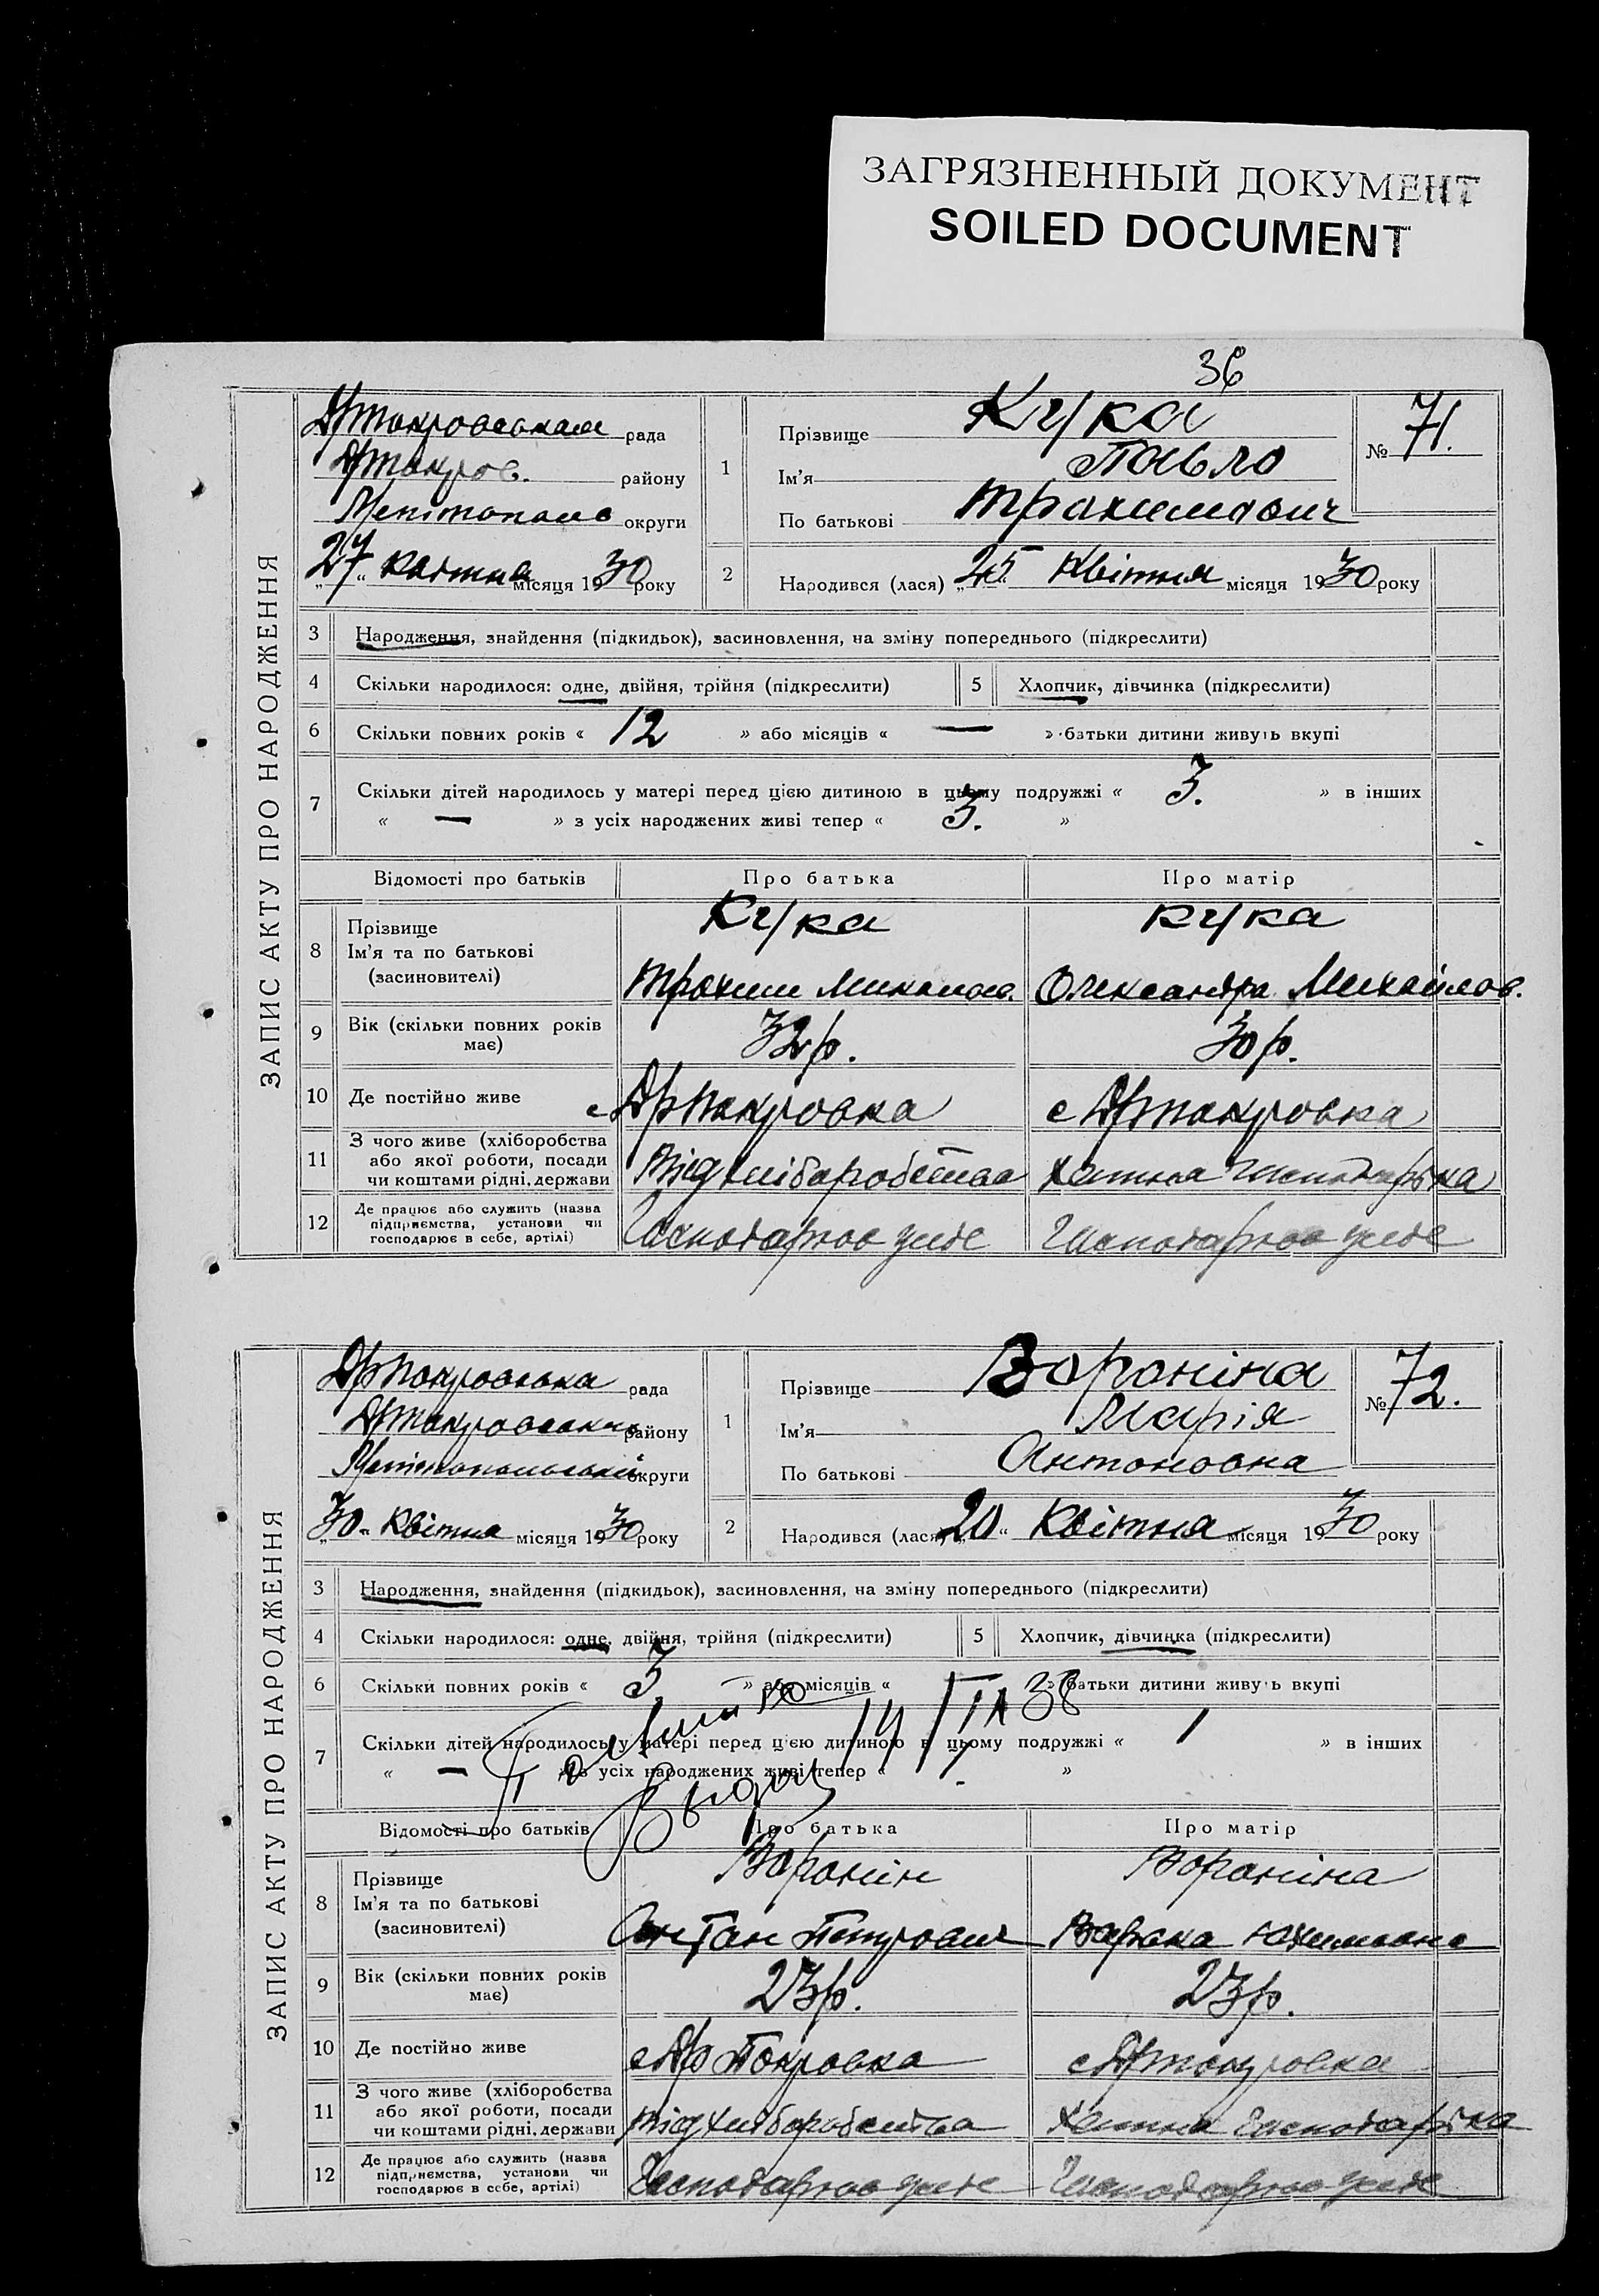 ЗАГРЯЗНЕННЫЙ ДОКУМЕНТ
SOILED DOCUMENT
36
ЗАПИС АКТУ ПРО НАРОДЖЕННЯ
рада
району
округи
27 місяця 1930 року
1
Прізвище Кука
Ім'я Павло
По батькові Трохимович
№ 71.
2
Народився (лася) „25“ Квітня місяця 1930 року
3 Народження, знайдення (підкидьок), засиновлення, на зміну попереднього (підкреслити)
4 Скільки народилося: одне, двійня, трійня (підкреслити) 5 Хлопчик, дівчинка (підкреслити)
6 Скільки повних років « 12 » або місяців « — » батьки дитини живуть вкупі
7 Скільки дітей народилось у матері перед цією дитиною в цьому подружжі « 3. » в інших
« — » з усіх народжених живі тепер « 3. »
Відомості про батьків Про батька Про матір
8 Прізвище Кука Кука
Ім'я та по батькові
(засновителі) Трохим Миколов. Олександра Михайлов.
9 Вік (скільки повних років має) 32 р. 30 р.
10 Де постійно живе
11 З чого живе (хліборобства
або якої роботи, посади
чи коштами рідні, держави Від хліборобства Хатня господарка
12 Де працює або служить (назва
підприємства, установи чи
господарює в себе, артілі)
ЗАПИС АКТУ ПРО НАРОДЖЕННЯ
рада
району
округи
„30“ Квітня місяця 1930 року
1
Прізвище Вороніна
Ім'я Марія
По батькові Антоновна
№ 72.
2
Народився (лася) „20“ Квітня місяця 1930 року
3 Народження, знайдення (підкидьок), засиновлення, на зміну попереднього (підкреслити)
4 Скільки народилося: одне, двійня, трійня (підкреслити) 5 Хлопчик, дівчинка (підкреслити)
6 Скільки повних років « 3 » або місяців « — » батьки дитини живуть вкупі
7 Скільки дітей народилось у матері перед цією дитиною в цьому подружжі « 1 » в інших
« — » з усіх народжених живі тепер « »
Відомості про батьків Про батька Про матір
8 Прізвище Воронін Вороніна
Ім'я та по батькові
(засновителі) Антон Петрович Варвара
9 Вік (скільки повних років має) 23 р. 23 р.
10 Де постійно живе
11 З чого живе (хліборобства
або якої роботи, посади
чи коштами рідні, держави Від хліборобства Хатня господарка
12 Де працює або служить (назва
підприємства, установи чи
господарює в себе, артілі)